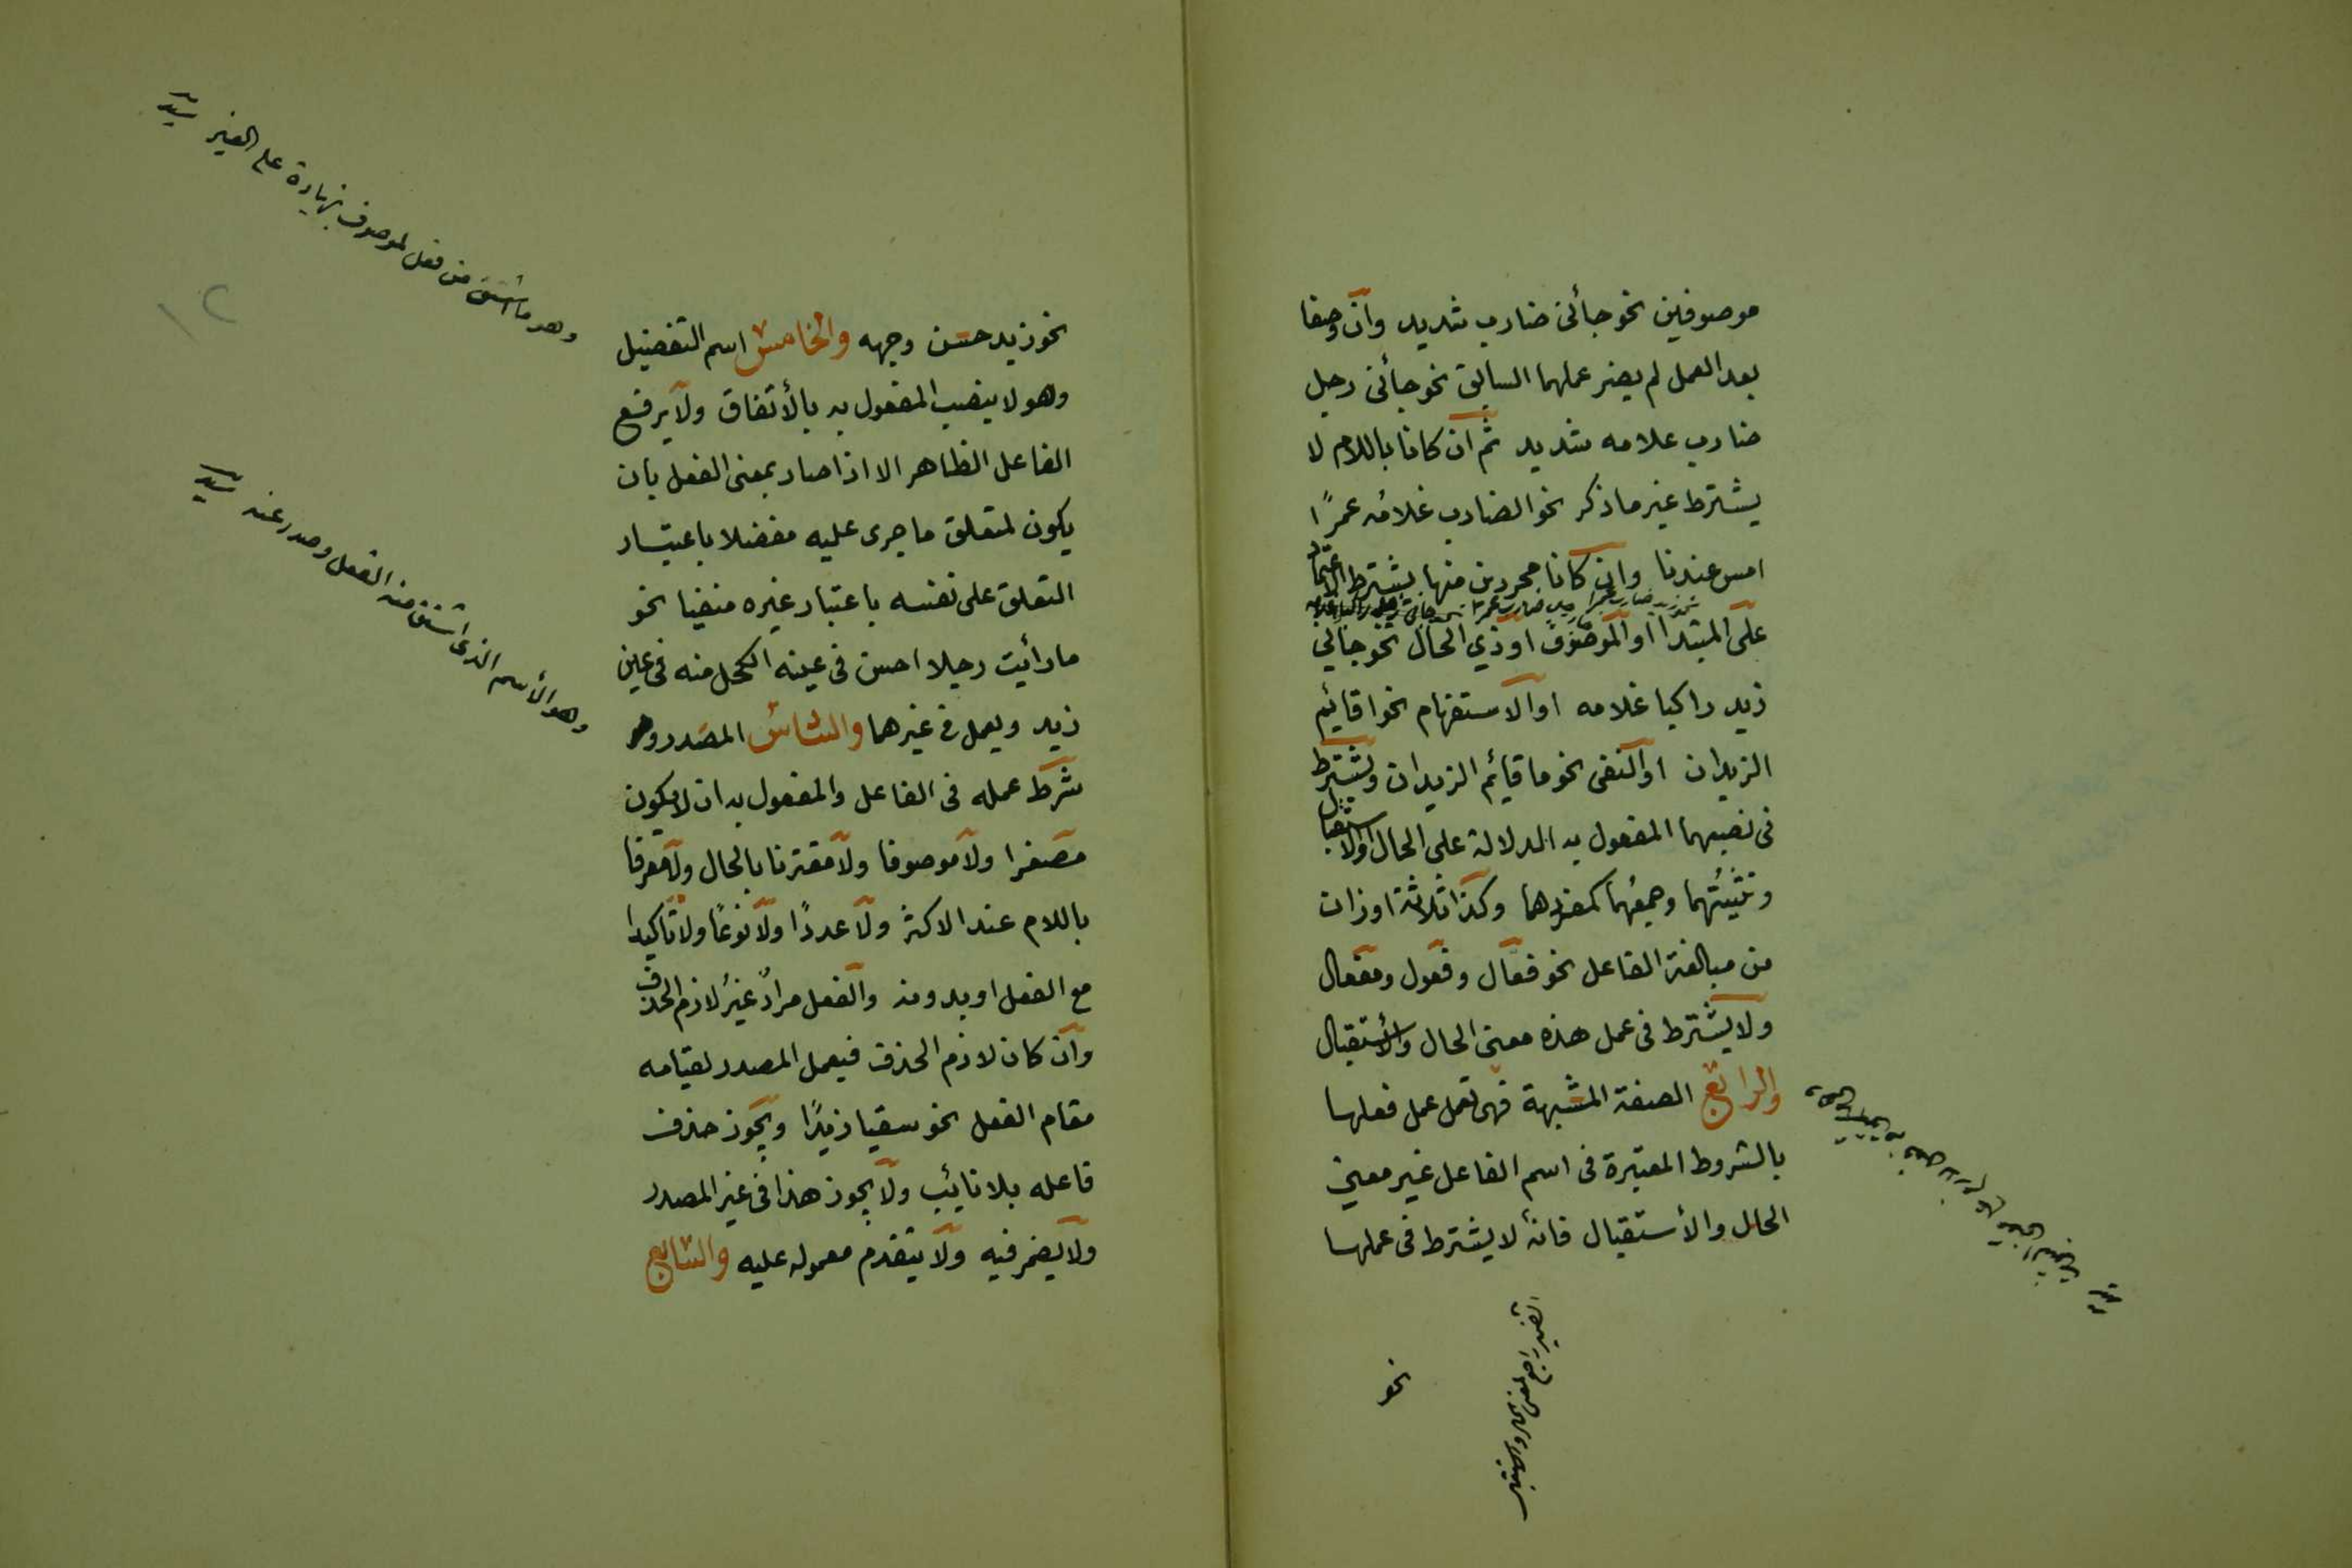 موصوفين نحو جائنى ضارب شديد وان وصفا
بعد العمل لم يضر عملهما السابق نحو جائنى رجل
ضارب غلامه شديد ثم ان كانا باللام لا
يشترط غير ما ذكر نحو الضارب غلامُه عمرًا
امس عندنا وان كانا مجردين منها يشترط الاعتماد
على المبتدأ او الموصوف او ذي الحال نحو جائني
زيد راكبا غلامه او الاستفهام نحو اقائم
الزيدان او النفى نحو ما قائم الزيدان ويشترط
فى نصبهما المفعول به الدلالة على الحال او الاستقبال
وتثنيتُهما وجمعُهما كمفردهما وكذا ثلاثة اوزان
من مبالغة الفاعل نحو فعّال وفعول ومفعال
ولا يشترط فى عمل هذه معنى الحال والأستقبال
والرابع الصفة المشبهة فهى تعمل عمل فعلها
بالشروط المعتبرة فى اسم الفاعل غير معنى
الحال والأستقبال فانه لا يشترط فى عملها
نحو
نحو زيد حسن وجهه والخامس اسم التفضيل
وهو لا ينصب المفعول به بالأتفاق ولا يرفع
الفاعل الظاهر الا اذا صار بمعنى الفعل بان
يكون لمتعلق ما جرى عليه مفضلا باعتبار
التعلق على نفسه باعتبار غيره منفيا نحو
ما رأيت رجلا احسن فى عينه الكحل منه فى عين
زيد ويعمل فى غيرهما والسادس المصدر و
شرط عمله فى الفاعل والمفعول به ان لا يكون
مصغرا ولا موصوفا ولا مقترنا بالحال ولا معرفا
باللام عند الاكثر ولا عددًا ولا نوعًا ولا تأكيدا
مع الفعل او بدونه والفعل مرادٌ غيرُ لازم الحذف
وان كان لازم الحذف فيعمل المصدر لقيامه
مقام الفعل نحو سقيا زيدًا ويجوز حذف
فاعله بلا نائب ولا يجوز هذا فى غير المصدر
ولا يضمر فيه ولا يتقدم معموله عليه والسابع
وهو ما اشتق من فعل لموصوف بزيادة على الغير سيد
١٢
وهو الأسم الذى اشتق منه الفعل وصدر عنه سيد